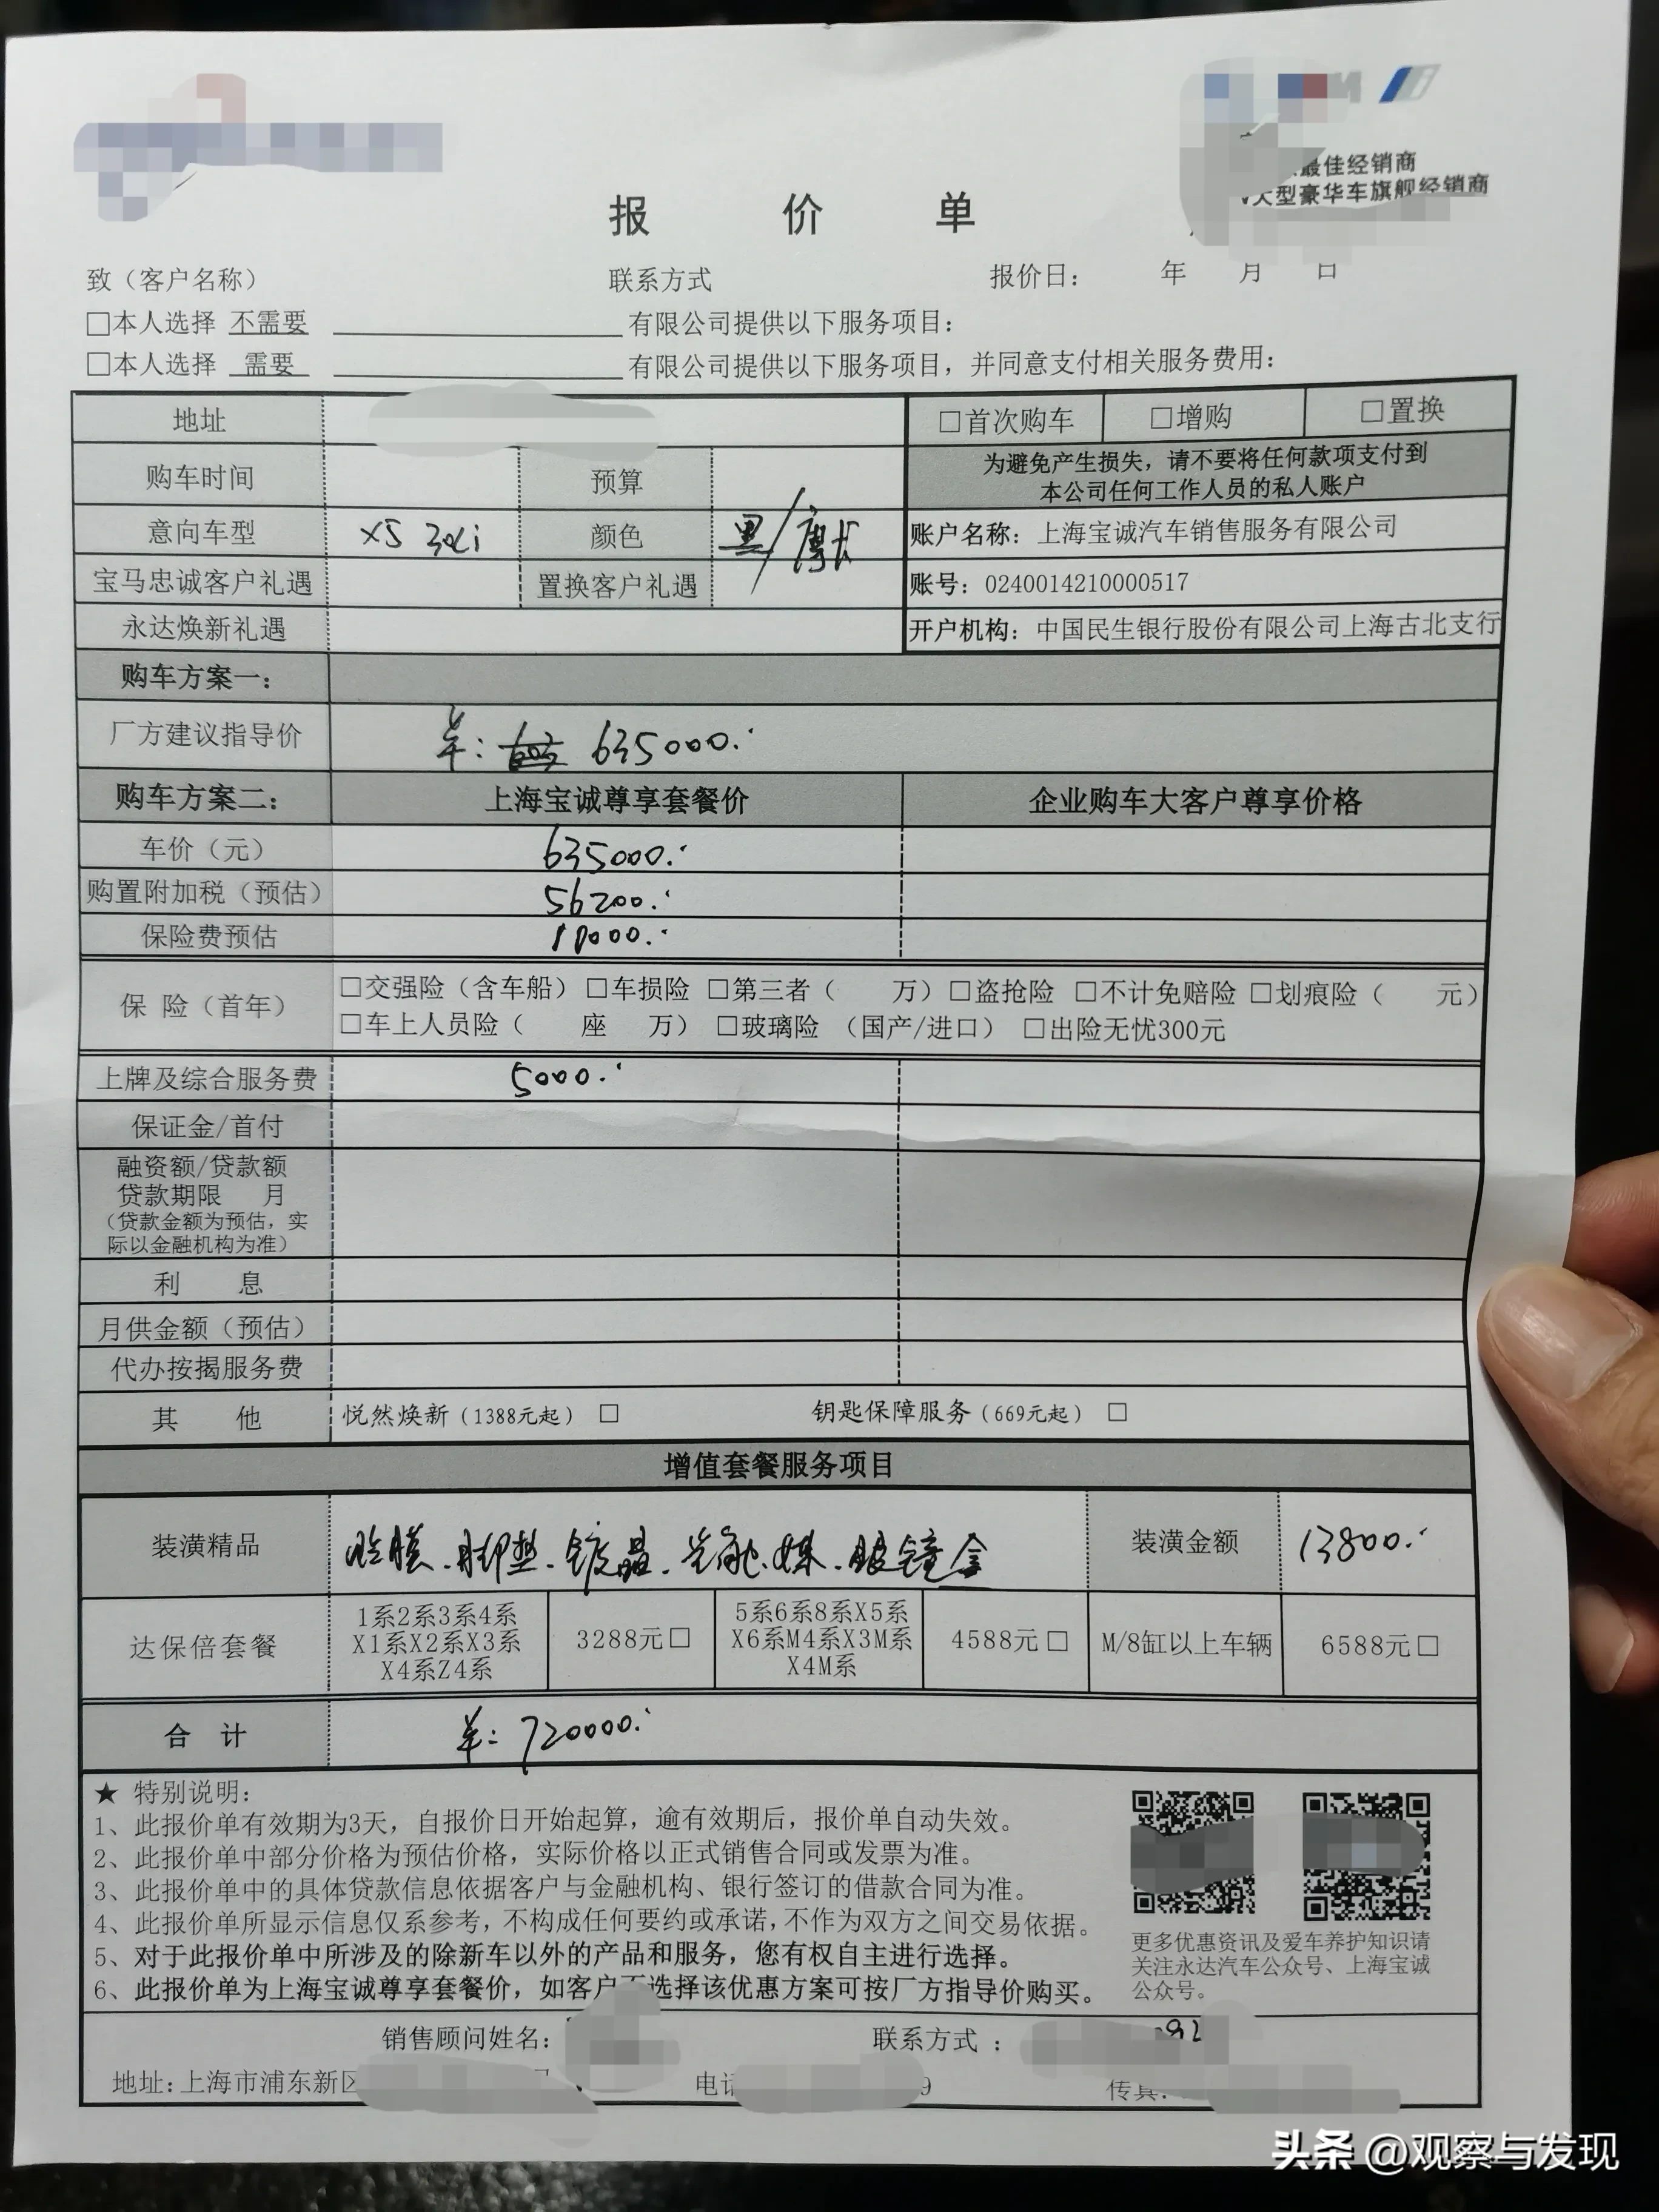 最佳经销商
大型豪华车旗舰经销商
报 价 单
致（客户名称） 联系方式 报价日： 年 月 日
□本人选择 不需要 有限公司提供以下服务项目：
□本人选择 需要 有限公司提供以下服务项目，并同意支付相关服务费用：
地址 □首次购车 □增购 □置换
购车时间 预算 为避免产生损失，请不要将任何款项支付到
本公司任何工作人员的私人账户
意向车型 X5 30Li 颜色 黑/摩卡 账户名称：上海宝诚汽车销售服务有限公司
宝马忠诚客户礼遇 置换客户礼遇 账号：0240014210000517
永达焕新礼遇 开户机构：中国民生银行股份有限公司上海古北支行
购车方案一：
厂方建议指导价 ¥: 635000.
购车方案二： 上海宝诚尊享套餐价 企业购车大客户尊享价格
车价（元） 635000.
购置附加税（预估） 56200.
保险费预估 10000.
保 险（首年） □交强险（含车船）□车损险 □第三者（ 万）□盗抢险 □不计免赔险 □划痕险（ 元）
□车上人员险（ 座 万） □玻璃险 （国产/进口） □出险无忧300元
上牌及综合服务费 5000.
保证金/首付
融资额/贷款额
贷款期限 月
（贷款金额为预估，实
际以金融机构为准）
利 息
月供金额（预估）
代办按揭服务费
其 他 悦然焕新（1388元起） □ 钥匙保障服务（669元起） □
增值套餐服务项目
装潢精品 贴膜.脚垫.镀晶.光触媒.眼镜盒 装潢金额 13800.
达保倍套餐 1系2系3系4系
X1系X2系X3系
X4系Z4系 3288元□ 5系6系8系X5系
X6系M4系X3M系
X4M系 4588元□ M/8缸以上车辆 6588元□
合 计 ¥: 720000.
★ 特别说明：
1、此报价单有效期为3天，自报价日开始起算，逾有效期后，报价单自动失效。
2、此报价单中部分价格为预估价格，实际价格以正式销售合同或发票为准。
3、此报价单中的具体贷款信息依据客户与金融机构、银行签订的借款合同为准。
4、此报价单所显示信息仅系参考，不构成任何要约或承诺，不作为双方之间交易依据。
5、对于此报价单中所涉及的除新车以外的产品和服务，您有权自主进行选择。
6、此报价单为上海宝诚尊享套餐价，如客户不选择该优惠方案可按厂方指导价购买。
更多优惠资讯及爱车养护知识请
关注永达汽车公众号、上海宝诚
公众号。
销售顾问姓名： 联系方式： 92
地址：上海市浦东新区 电话 9 传真：
头条 @观察与发现